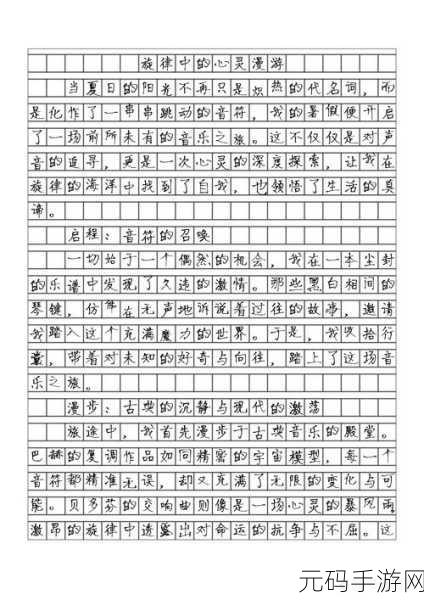 旋律中的心灵漫游
当夏日的阳光不再只是炽热的代名词，而
是化作了一串串跳动的音符，我的暑假便开启
了一场前所未有的音乐之旅。这不仅仅是对声
音的追寻，更是一次心灵的深度探索，让我在
旋律的海洋中找到了自我，也领悟了生活的真
谛。
启程：音符的召唤
一切始于一个偶然的机会，我在一本尘封
的乐谱中发现了久违的激情。那些黑白相间的
琴键，仿佛在无声地诉说着过往的故事，邀请
我踏入这个充满魔力的世界。于是，我收拾行
囊，带着对未知的好奇与向往，踏上了这场音
乐之旅。
漫步：古典的沉静与现代的激荡
旅途中，我首先漫步于古典音乐的殿堂。
巴赫的复调作品如同精密的宇宙模型，每一个
音符都精准无误，却又充满了无限的变化与可
能。贝多芬的交响曲则像是一场心灵的暴风雨，
激昂的旋律中透露出对命运的抗争与不屈。这
元码手游网